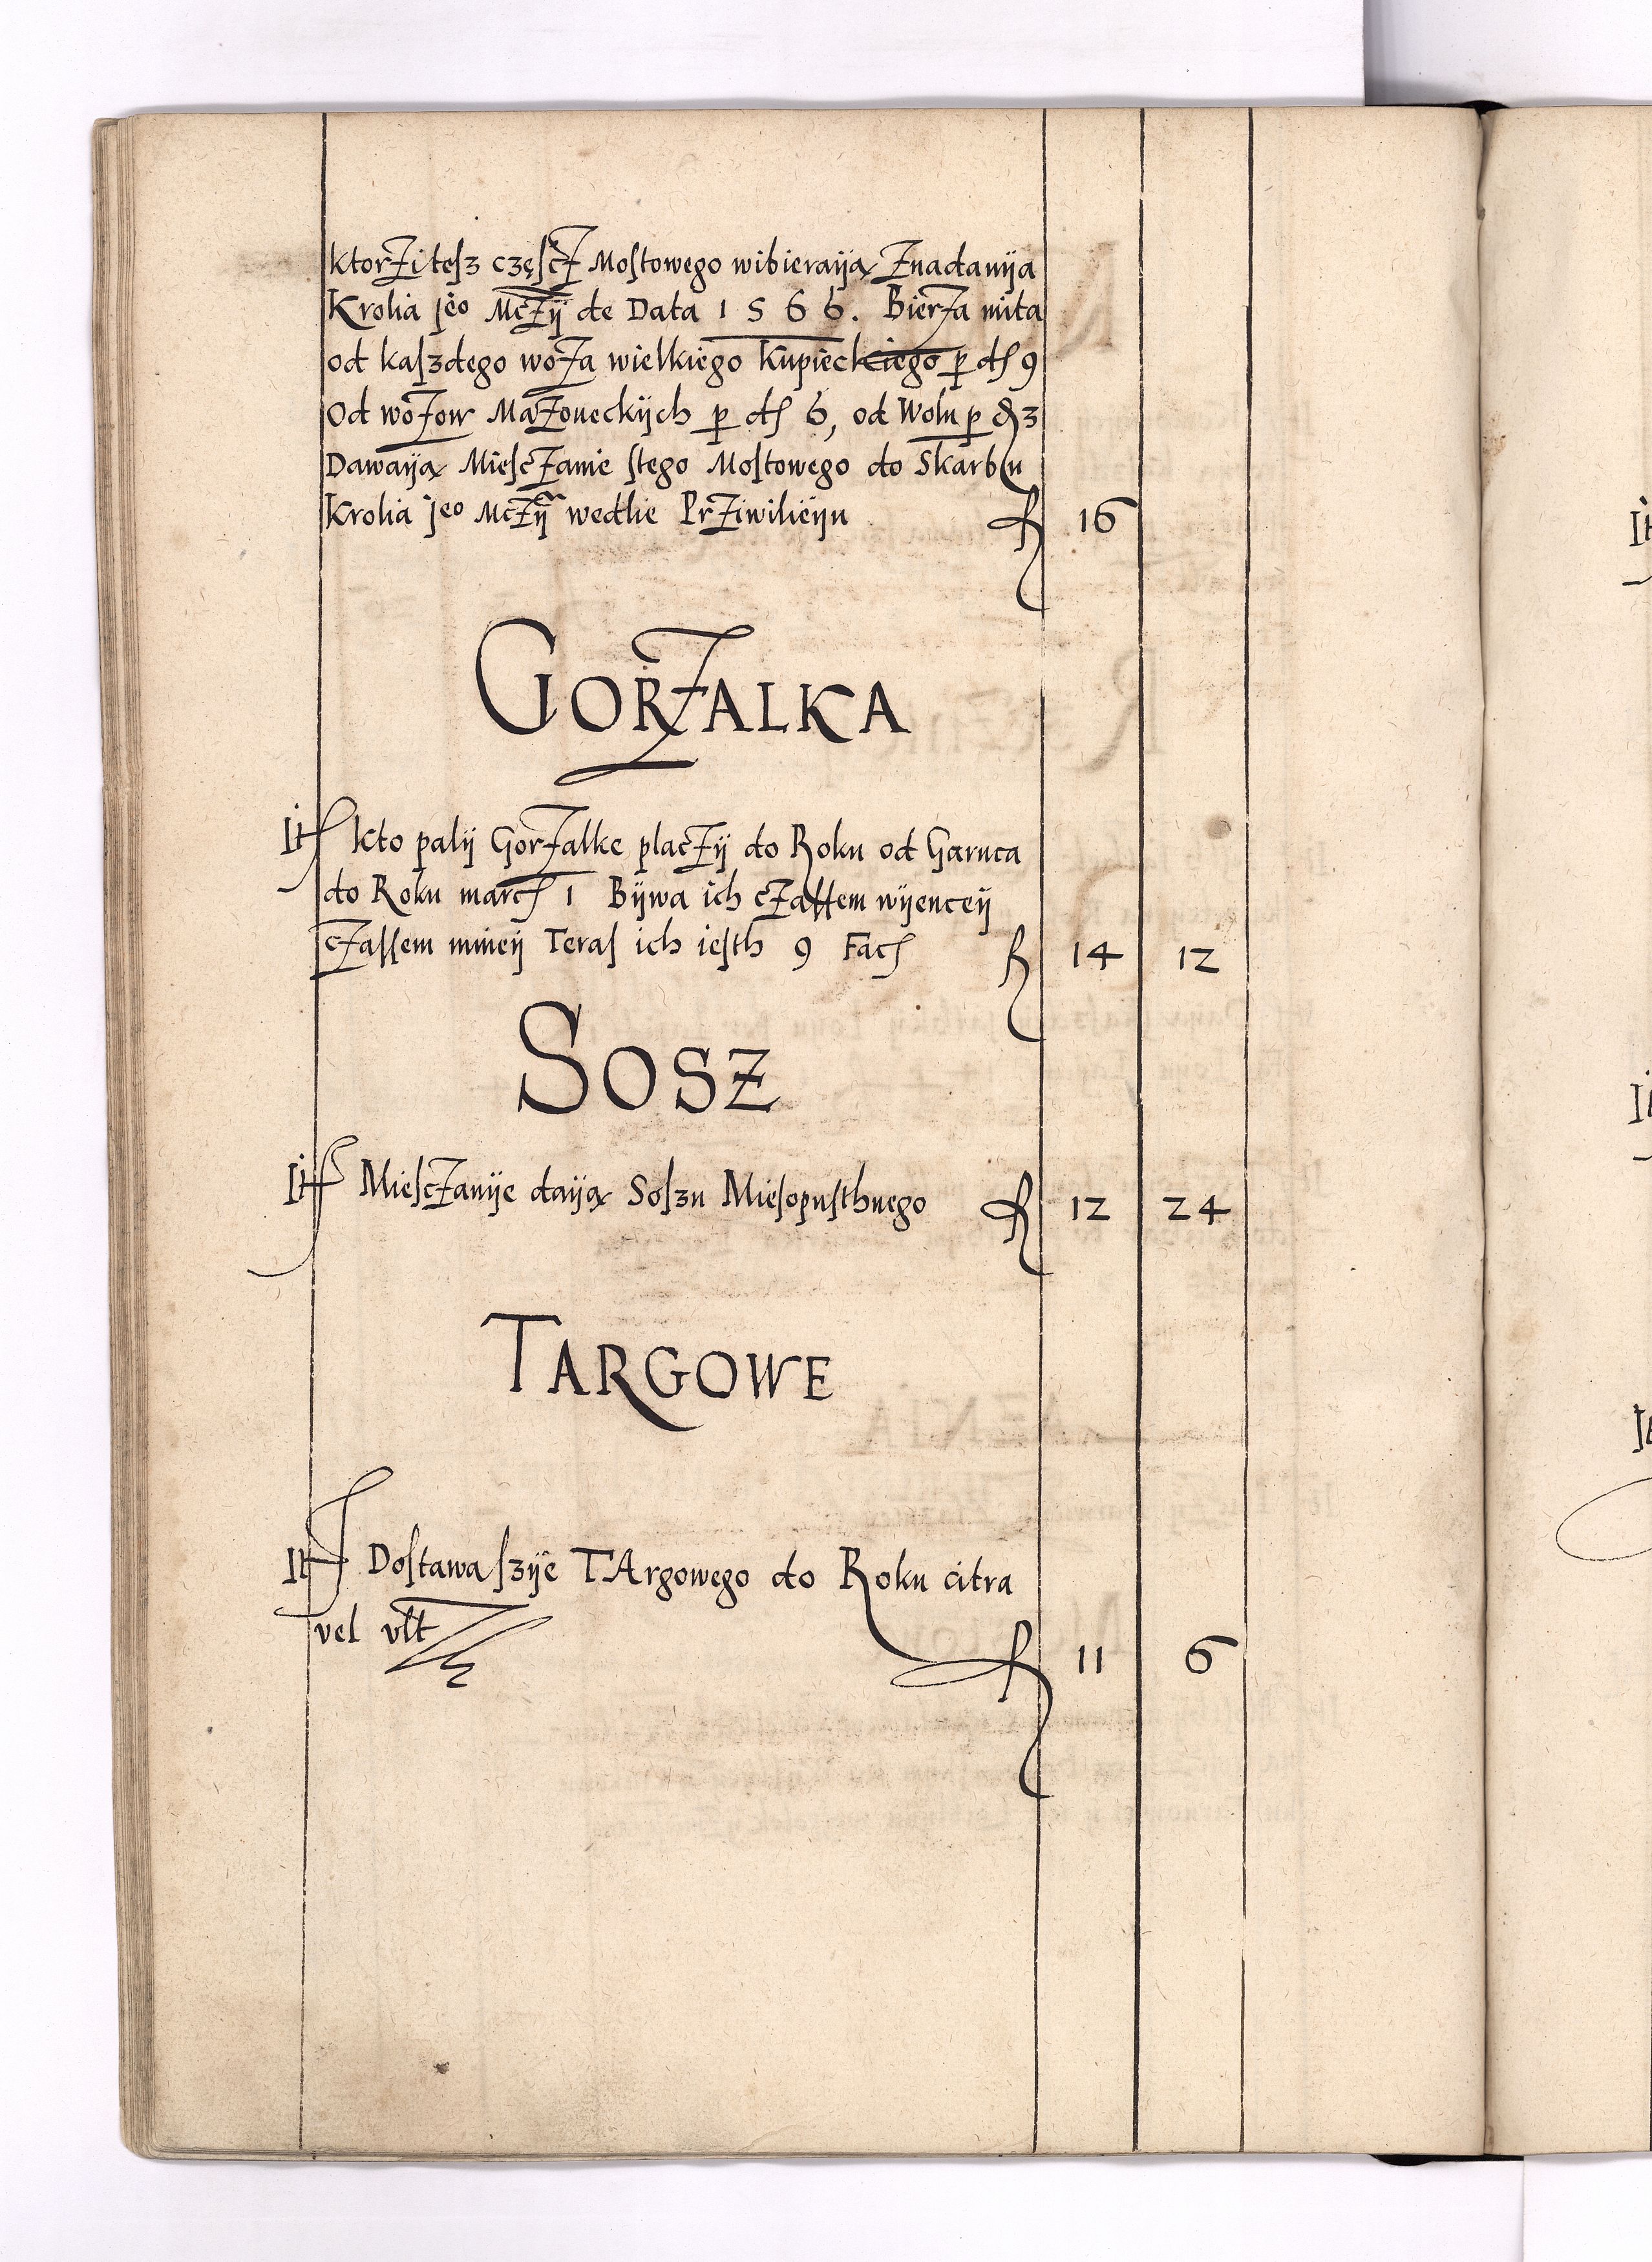 ktorZi teſz częſcZ Moſtowego wibieraija Znadanija
Krolia jeo McZij de Data 1566. BierZa mita
od kaſzdego woZa wielkiego Kupieckiego p dſ 9
Od woZow MaZoueckijch p dſ 6, od Wolu p dſ 3
Dawaija MieſcZanie ſtego Moſtowego do Skarbu
Krolia jeo McZij wedlie PrZiwilieiju ƒ 16
GORZALKA
It kto palij GorZalke placZij do Roku od Garnca
do Roku marcſ 1 Bijwa ich cZaſſem wijenceij
cZaſſem mnieij Teraſ ich ieſth 9 Facſ ƒ 14 12
SOSZ
It MieſcZanije daija Soſzu Mieſopuſthnego ƒ 12 24
TARGOWE
It Doſtawa ſzije TArgowego do Roku citra
vel vlt ƒ 11 6